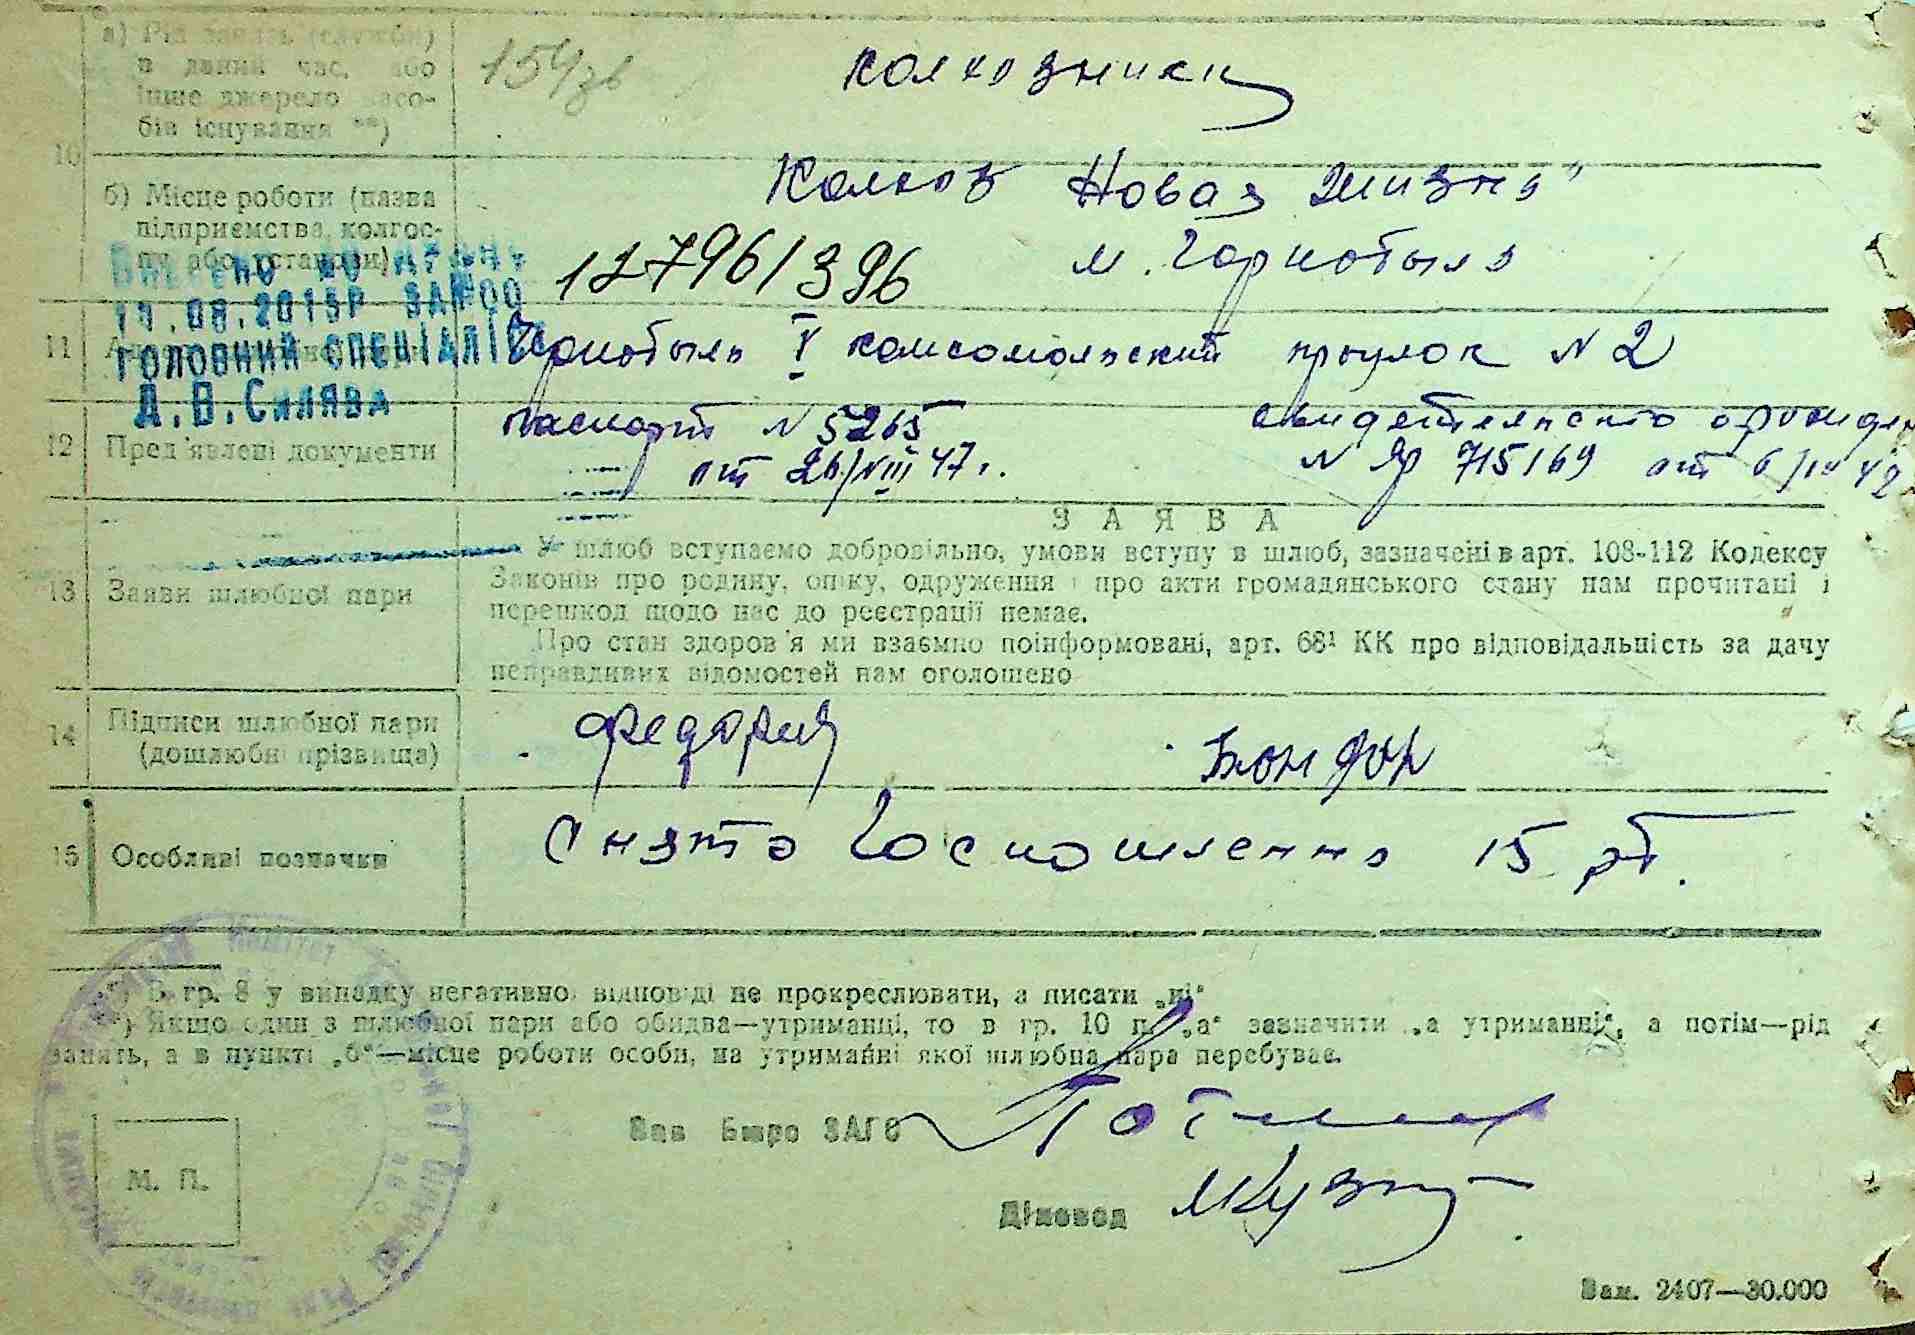 а) Рід занять (служби)
в даний час, або
інше джерело засо-
бів існування **)
колхозники
10
б) Місце роботи (назва
підприємства, колгос-
пу або установи)
Колхоз Новая жизнь"
12796/396
м. Чорнобыль
ГОЛОВНИЙ СПЕЦІАЛІСТ
Д.В.Силява
11
Чорнобыль V комсомольский проулок № 2
12
Пред'явлені документи
паспорт № 5265
от 26/VIII 47 г.
свидетельство о рожден
№ ЯР 715169 от
ЗАЯВА
13
Заяви шлюбної пари
У шлюб вступаємо добровільно, умови вступу в шлюб, зазначені в арт. 108-112 Кодексу
Законів про родину, опіку, одруження і про акти громадянського стану нам прочитані і
перешкод щодо нас до реєстрації немає.
Про стан здоров'я ми взаємно поінформовані, арт. 68¹ КК про відповідальність за дачу
неправдивих відомостей нам оголошено
14
Підписи шлюбної пари
(дошлюбні прізвища)
Федорич
Бондор
15
Особливі позначки
Снято Госпошленно 15 рб.
*) В гр. 8 у випадку негативної відповіді не прокреслювати, а писати „ні"
**) Якщо один з шлюбної пари або обидва—утриманці, то в гр. 10 п. „а" зазначити „а утриманні", а потім—рід
занять, а в пункті „б"—місце роботи особи, на утриманні якої шлюбна пара перебуває.
Зав Бюро ЗАГС
М. П.
Діловод
Зам. 2407—30.000